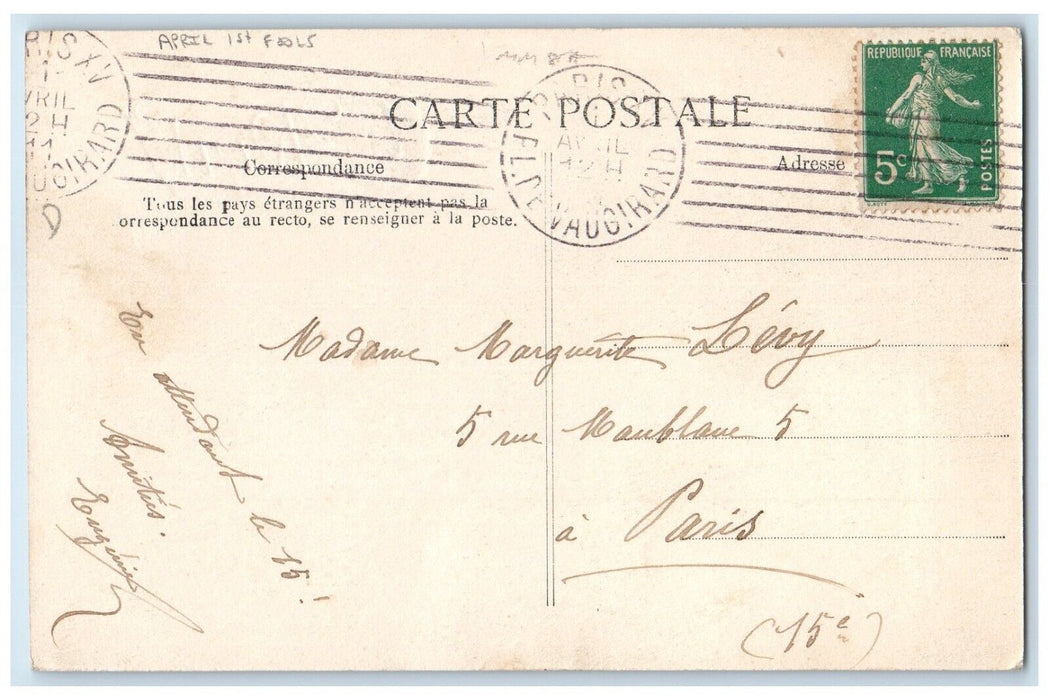 APRIL 1st FOOLS
RIS XV
VRIL
12 H
UGIRARD
D
PARIS
AVRIL
12 H
PL. DE VAUGIRARD
REPUBLIQUE FRANÇAISE
5c
POSTES
CARTE POSTALE
Correspondance
Adresse
Tous les pays étrangers n'acceptent pas la
orrespondance au recto, se renseigner à la poste.
Madame Marguerite Lévy
5 rue Maublanc 5
à Paris
(15e)
En attendant le 15!
Amitiés.
Eugénie